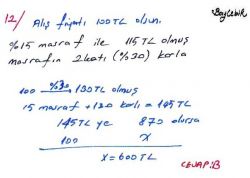 12/ Alış fiyatı 100 TL olsun.
%15 masraf ile 115 TL olmuş
masrafın 2 katı (%30) karla
100 %30 130 TL olmuş
15 masraf + 130 karlı = 145 TL
145 TL ye 870 olursa
100 x
x = 600 TL
CEVAP: B